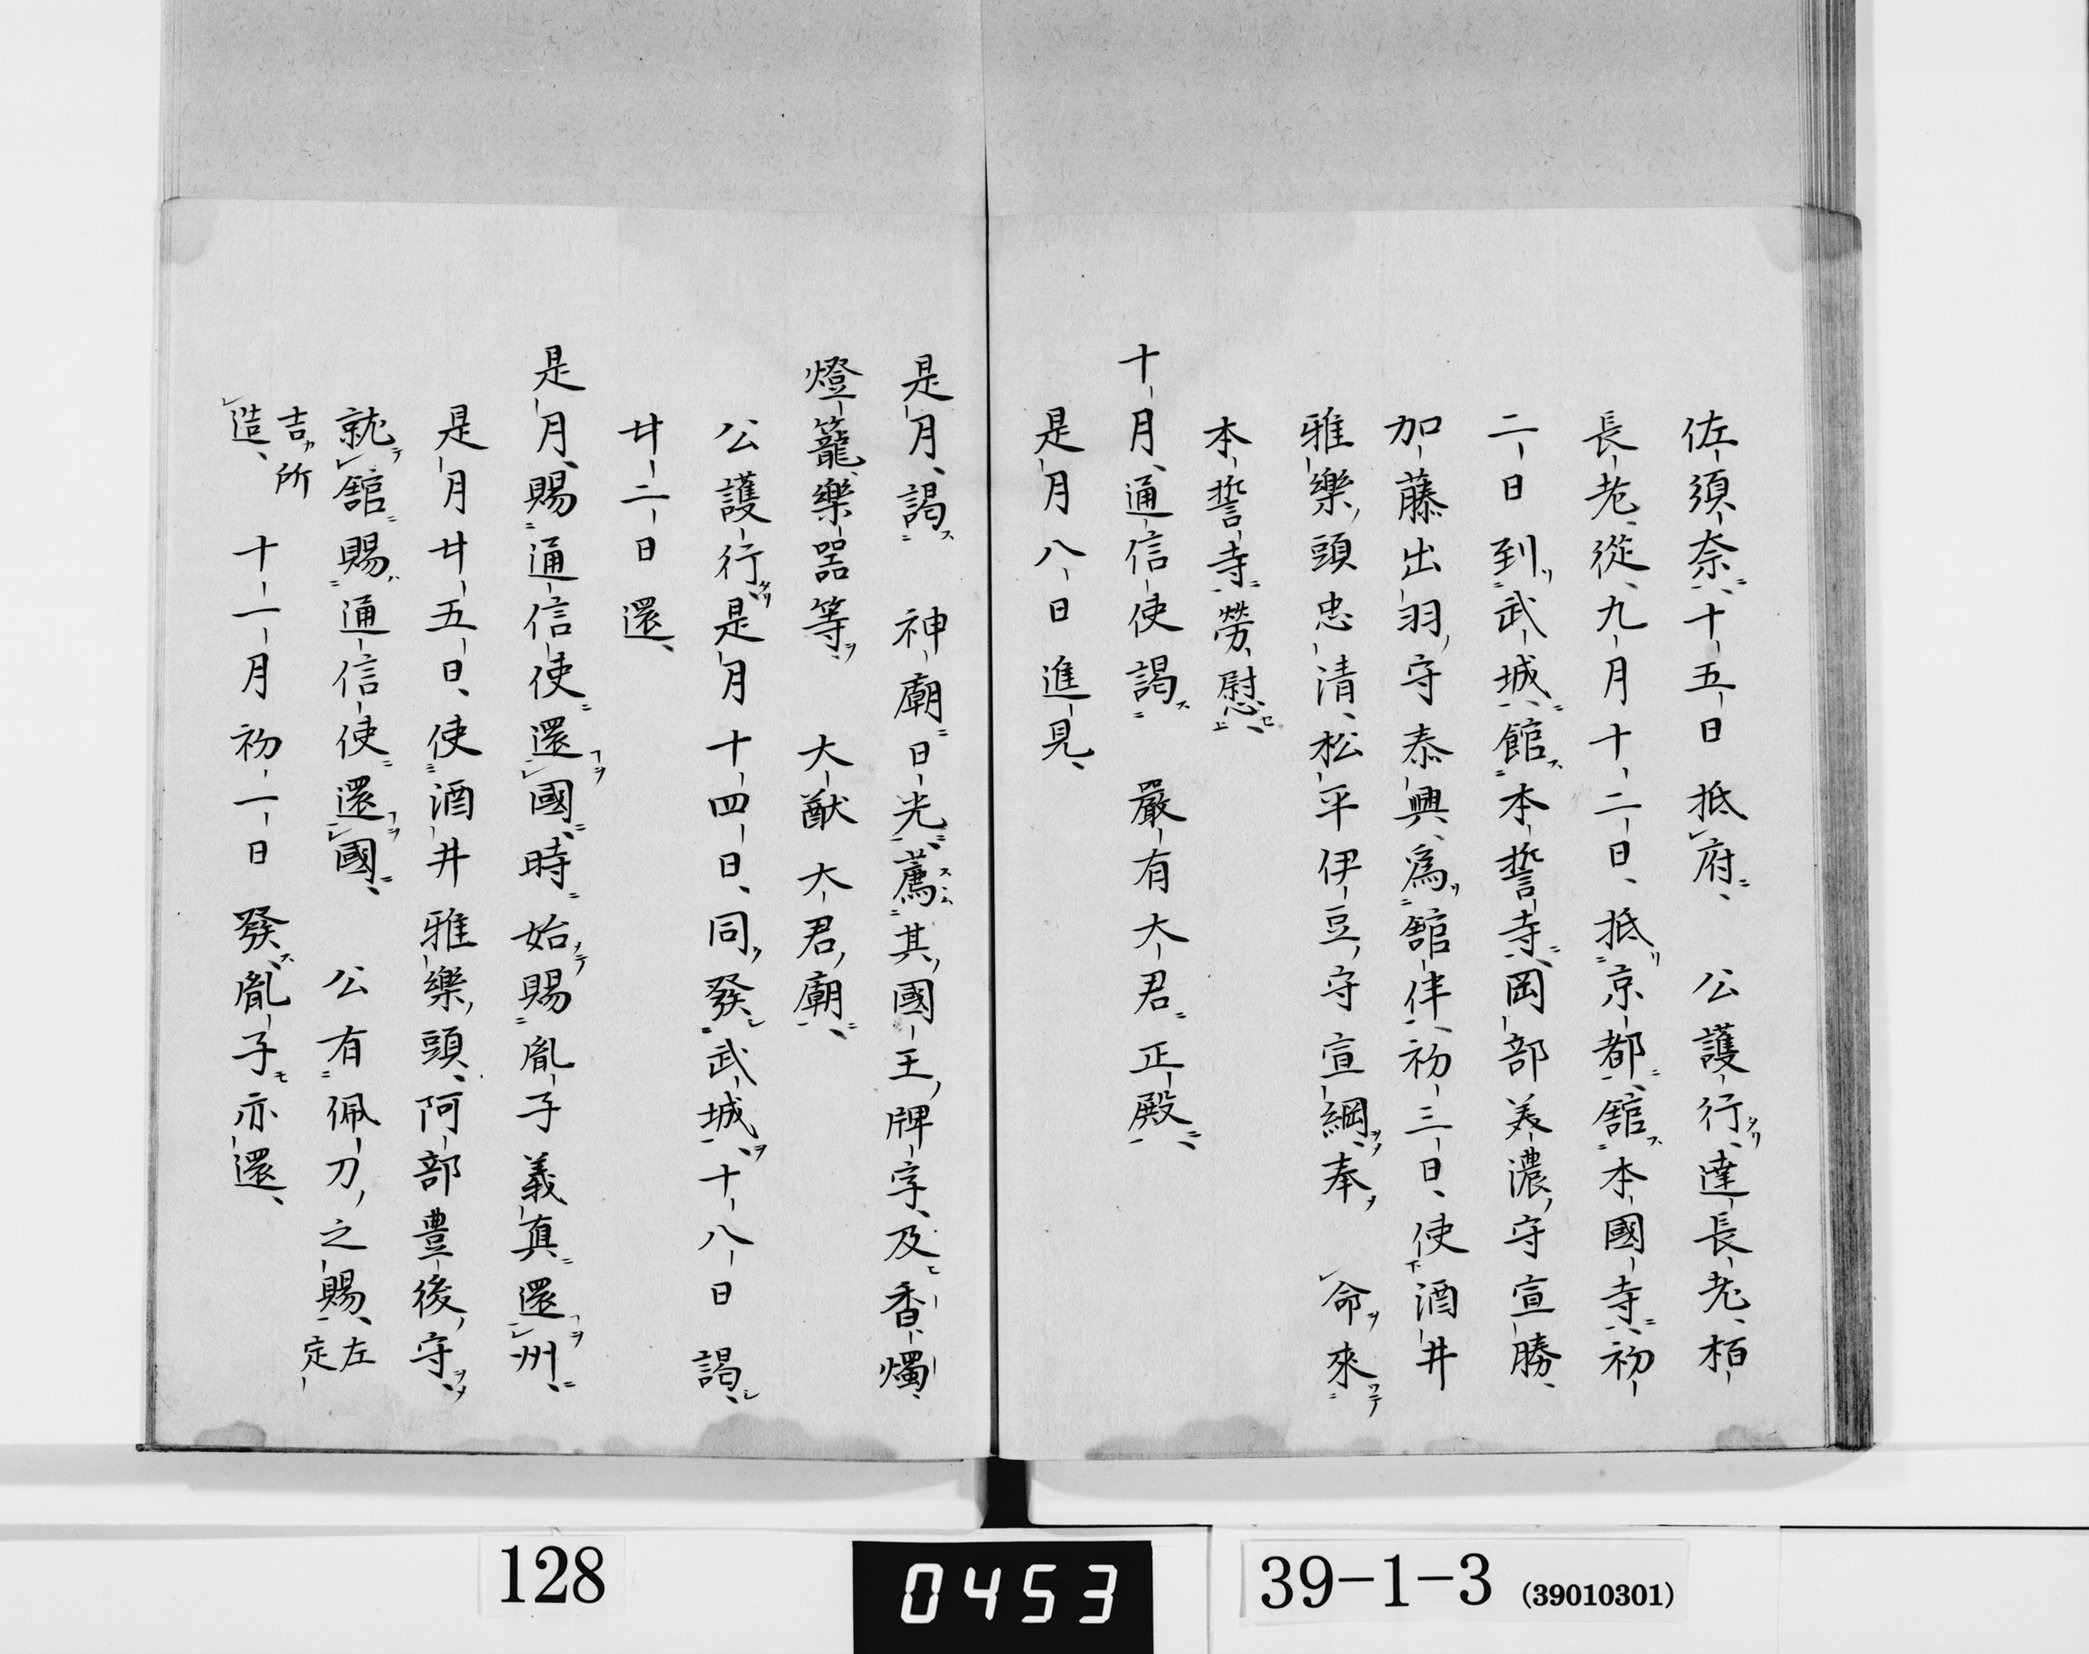 佐須奈十五日抵府　公護行達長老栢
長老從九月十二日抵京都舘本國寺初
二日到武城館本誓寺岡部美濃守宣勝
加藤出羽守泰興爲舘伴初三日使酒井
雅樂頭忠清松平伊豆守宣綱奉　命來
本誓寺勞慰
十月通信使謁　嚴有大君正殿
是月八日進見
是月謁　神廟日光薦其國王牌字及香燭
燈籠樂器等　大猷大君廟
公護行是月十四日同發武城十八日謁
廿二日還
是月賜通信使還國時始賜胤子義真還州
是月廿五日使酒井雅樂頭阿部豊後守
就舘賜通信使還國　公有佩刀之賜左定
吉所
造　十一月初一日發胤子亦還
128
0453
39-1-3 (39010301)